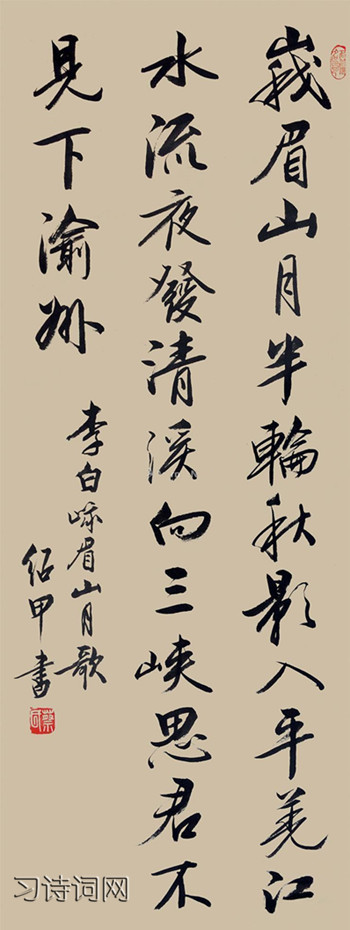 峩眉山月半輪秋影入平羌江
水流夜發清溪向三峽思君不
見下渝州
李白峨眉山月歌
紹甲書
习诗词网